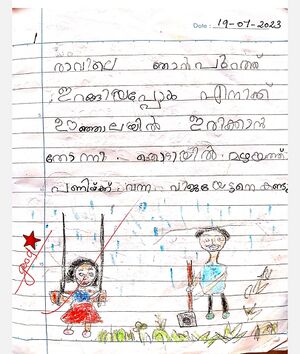 Date : 19-07-2023
1
രാവിലെ ഞാൻ പുറത്ത്
ഇറങ്ങിയപ്പോൾ എനിക്ക്
ഊഞ്ഞാലയിൽ ഇരിക്കാൻ
തോന്നി. തൊടിയിൽ മഴയത്ത്
പണിയ്ക്ക് വന്ന
കണ്ടു
good